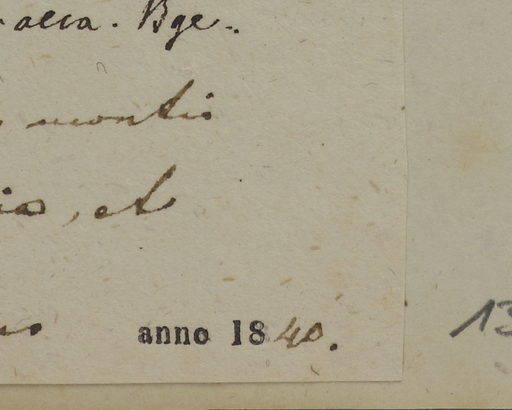 alla. Bge.
montis
, et
anno 1840.
13